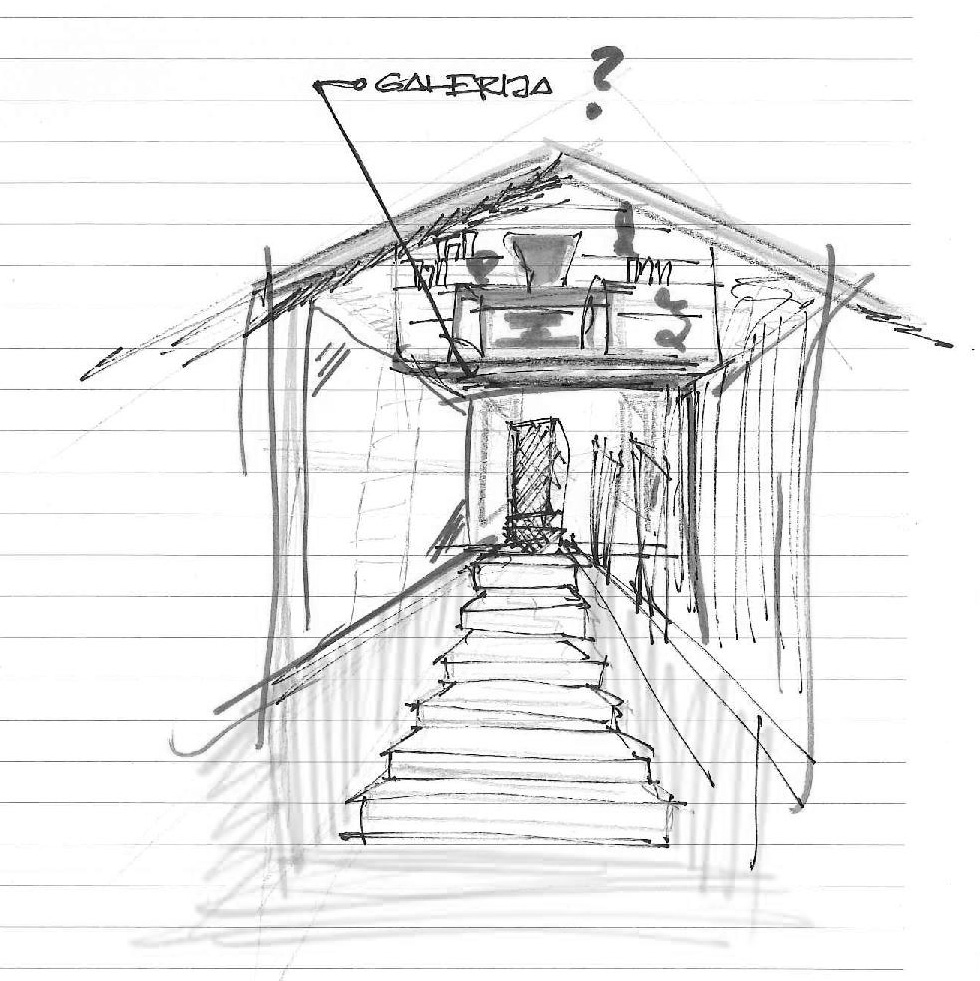 GALERIJA ?